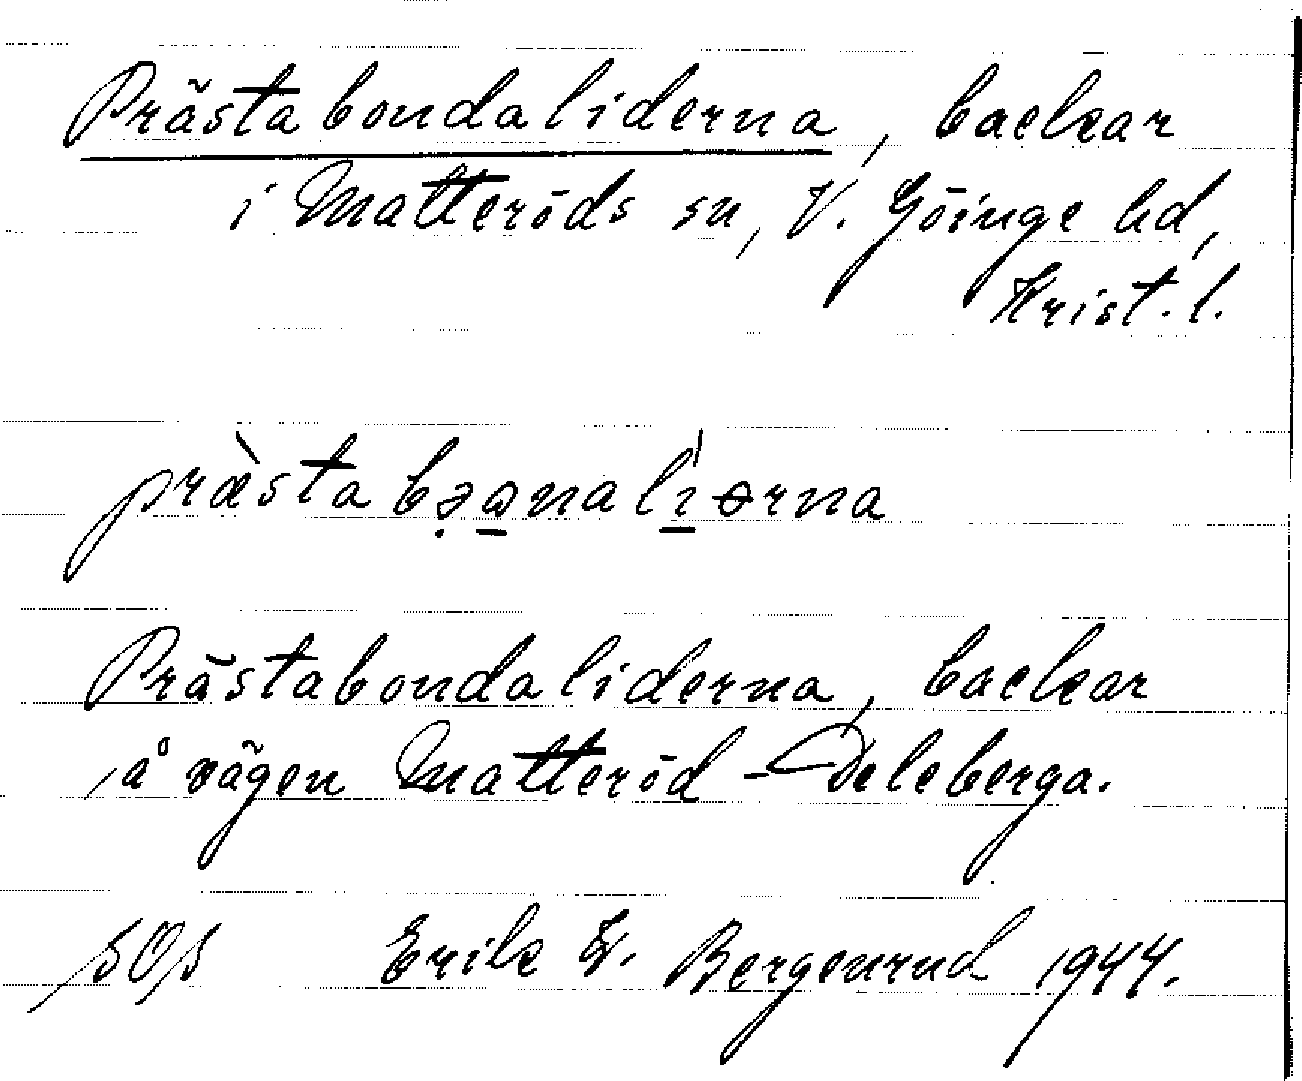 Prästabondaliderna, backar
i Matteröds sn, V. Göinge hd,
Krist. l.
præ̀sta bə̣ɷ̱nalı̱́ɵrna
Prästabondaliderna, backar
å vägen Matteröd - Deleberga.
SOS Erik W. Bergenrud 1944.